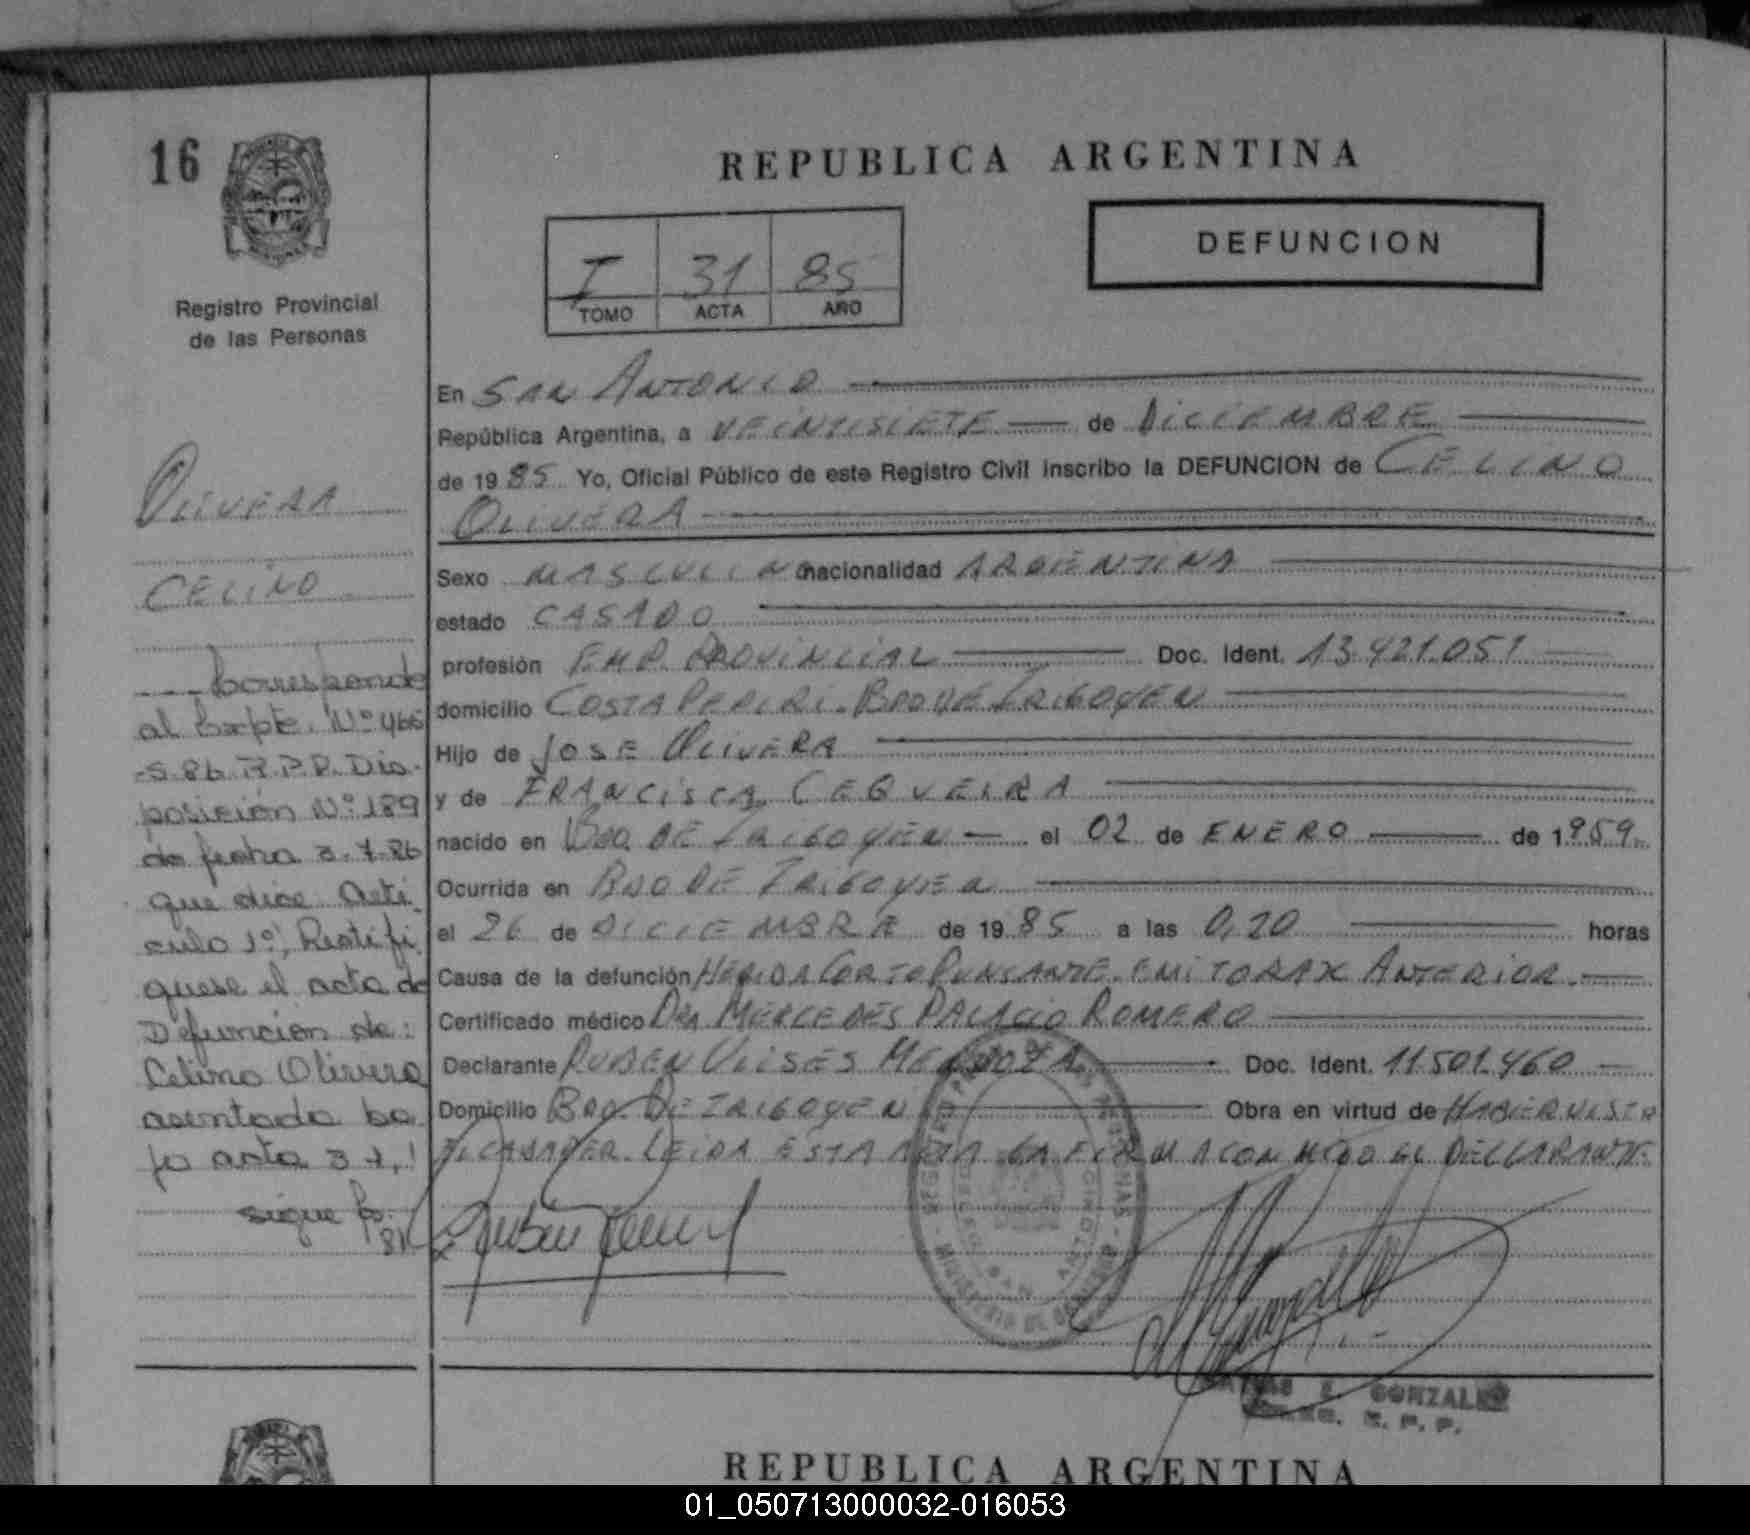 16
Registro Provincial
de las Personas
OLIVERA
CELINO
Corresponde
al Expte. Nº 466
-S-86 R.P.P. Dis-
posición Nº 189
de fecha 3.7.86
que dice Artí-
culo 1º, Rectifi
quese el acta de
Defuncion de:
Celino Olivera
asentada ba
jo acta 31,
sigue Fo.
81
REPUBLICA ARGENTINA
I 31 85
TOMO ACTA AÑO
DEFUNCION
En SAN ANTONIO
República Argentina, a VEINTISIETE de DICIEMBRE
de 19 85 Yo, Oficial Público de este Registro Civil inscribo la DEFUNCION de CELINO
OLIVERA
Sexo MASCULINO nacionalidad ARGENTINA
estado CASADO
profesión EMP. PROVINCIAL Doc. Ident. 13.421.051
domicilio COSTA PEPIRI - BDO DE IRIGOYEN
Hijo de JOSE OLIVERA
y de FRANCISCA CEQUEIRA
nacido en BDO. DE IRIGOYEN el 02 de ENERO de 1959
Ocurrida en BDO DE IRIGOYEN
el 26 de DICIEMBRE de 19 85 a las 0,20 horas
Causa de la defunción HERIDA CORTO PUNSANTE. EMITORAX ANTERIOR.
Certificado médico DRA MERCEDES PALACIO ROMERO
Declarante RUBEN ULISES MENDOZA Doc. Ident. 11.501.460
Domicilio BDO. DE IRIGOYEN Obra en virtud de HABER VISTO
EL CADAVER. LEIDA ESTA ACTA LA FIRMA CONMIGO EL DECLARANTE
MINISTERIO DE GOBIERNO
E. GONZALEZ
R. P. P.
REPUBLICA ARGENTINA
01_050713000032-016053